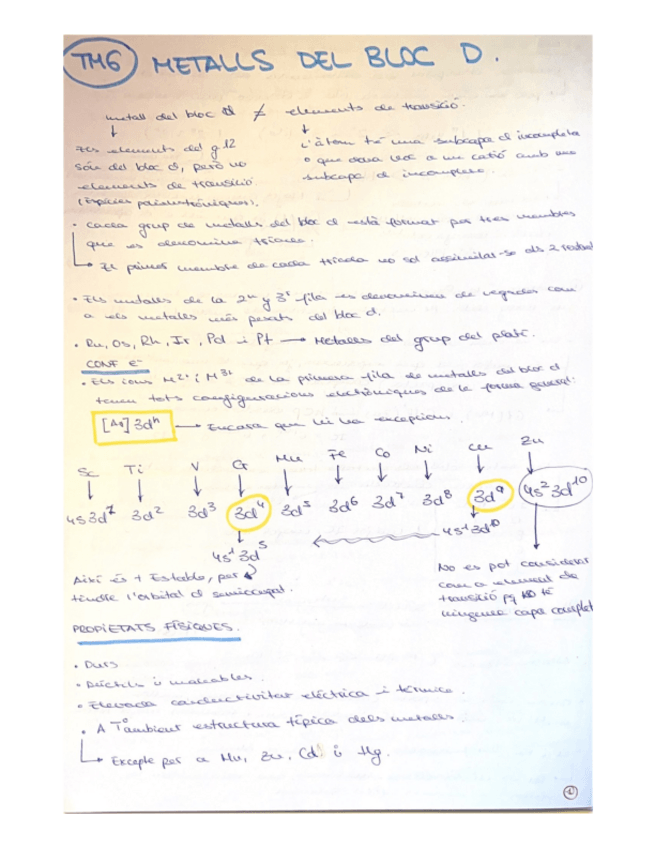 TM6 METALLS DEL BLOC D.
metall del bloc d ≠ elements de transició.
Els elements del g.12
són del bloc d, però no
elements de transició.
(Espècies paramagnètiques).
L'àtom té una subcapa d incompleta
o que dona lloc a un catió amb una
subcapa d incompleta.
• Cada grup de metalls del bloc d està format per tres membres
que es denomina tríada.
El primer membre de cada tríada no sol assimilar-se als 2 restant
• Els metalls de la 2ª y 3ª fila es denominen de vegades com
a els metalls més pesats del bloc d.
• Ru, Os, Rh, Ir, Pd i Pt → Metalls del grup del platí.
CONF e⁻
• Els ions M²⁺ i M³⁺ de la primera fila de metalls del bloc d
tenen tots configuracions electròniques de la forma general:
[Ar] 3dⁿ → Encara que hi ha excepcions.
Sc Ti V Cr Mn Fe Co Ni Cu Zn
3d² 3d³ 3d⁴ 3d⁵ 3d⁶ 3d⁷ 3d⁸ 3d⁹ 4s² 3d¹⁰
4s¹ 3d⁵ 4s¹ 3d¹⁰
Així és + Estable, per
tindre l'orbital d semiocupat.
No es pot considerar
com a element de
transició pq NO té
ninguna capa complet
PROPIETATS FÍSIQUES.
• Durs
• Dúctils i maleables.
• Elevada conductivitat elèctrica i tèrmica.
• A Tº ambient estructura típica dels metalls.
Excepte per a Mn, Zn, Cd i Hg.